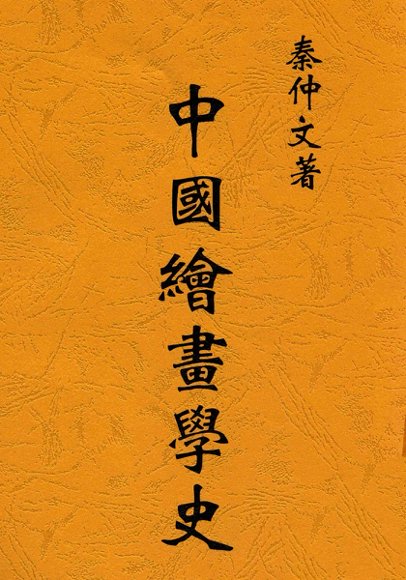 秦仲文著
中國繪畫學史